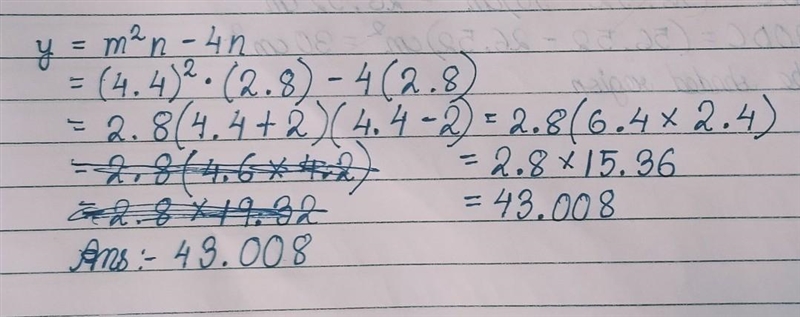 y = m²n - 4n
= (4.4)² · (2.8) - 4(2.8)
= 2.8(4.4+2)(4.4-2) = 2.8(6.4 × 2.4)
= 2.8(4.6 × 4.2) = 2.8 × 15.36
= 2.8 × 19.32 = 43.008
Ans :- 43.008